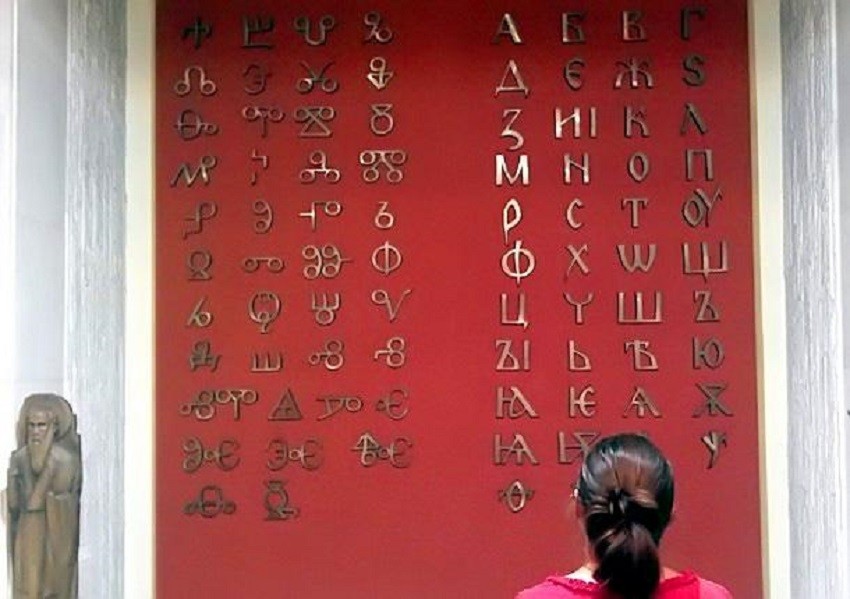 Ⰰ Ⰱ Ⰲ Ⰳ
Ⰴ Ⰵ Ⰶ Ⰷ
Ⰸ Ⰺ Ⰹ Ⰻ
Ⰼ Ⰽ Ⰾ Ⰿ
Ⱀ Ⱁ Ⱂ Ⱃ
Ⱄ Ⱅ Ⱆ Ⱇ
Ⱈ Ⱉ Ⱋ Ⱌ
Ⱍ Ⱎ Ⱏ Ⱐ
ⰟⰊ Ⱑ Ⱓ Ⱔ
Ⱘ Ⱗ Ⱙ
Ⱚ Ⱛ
А Б В Г
Д Є Ж Ѕ
З И І К Л
М Н О П
Р С Т ОУ
Ф Х Ѡ Щ
Ц Ч Ш Ъ
ЪІ Ь Ѣ Ю
Ꙗ Ѥ Ѧ Ѫ
Ѩ Ѭ Ѵ
Ѳ